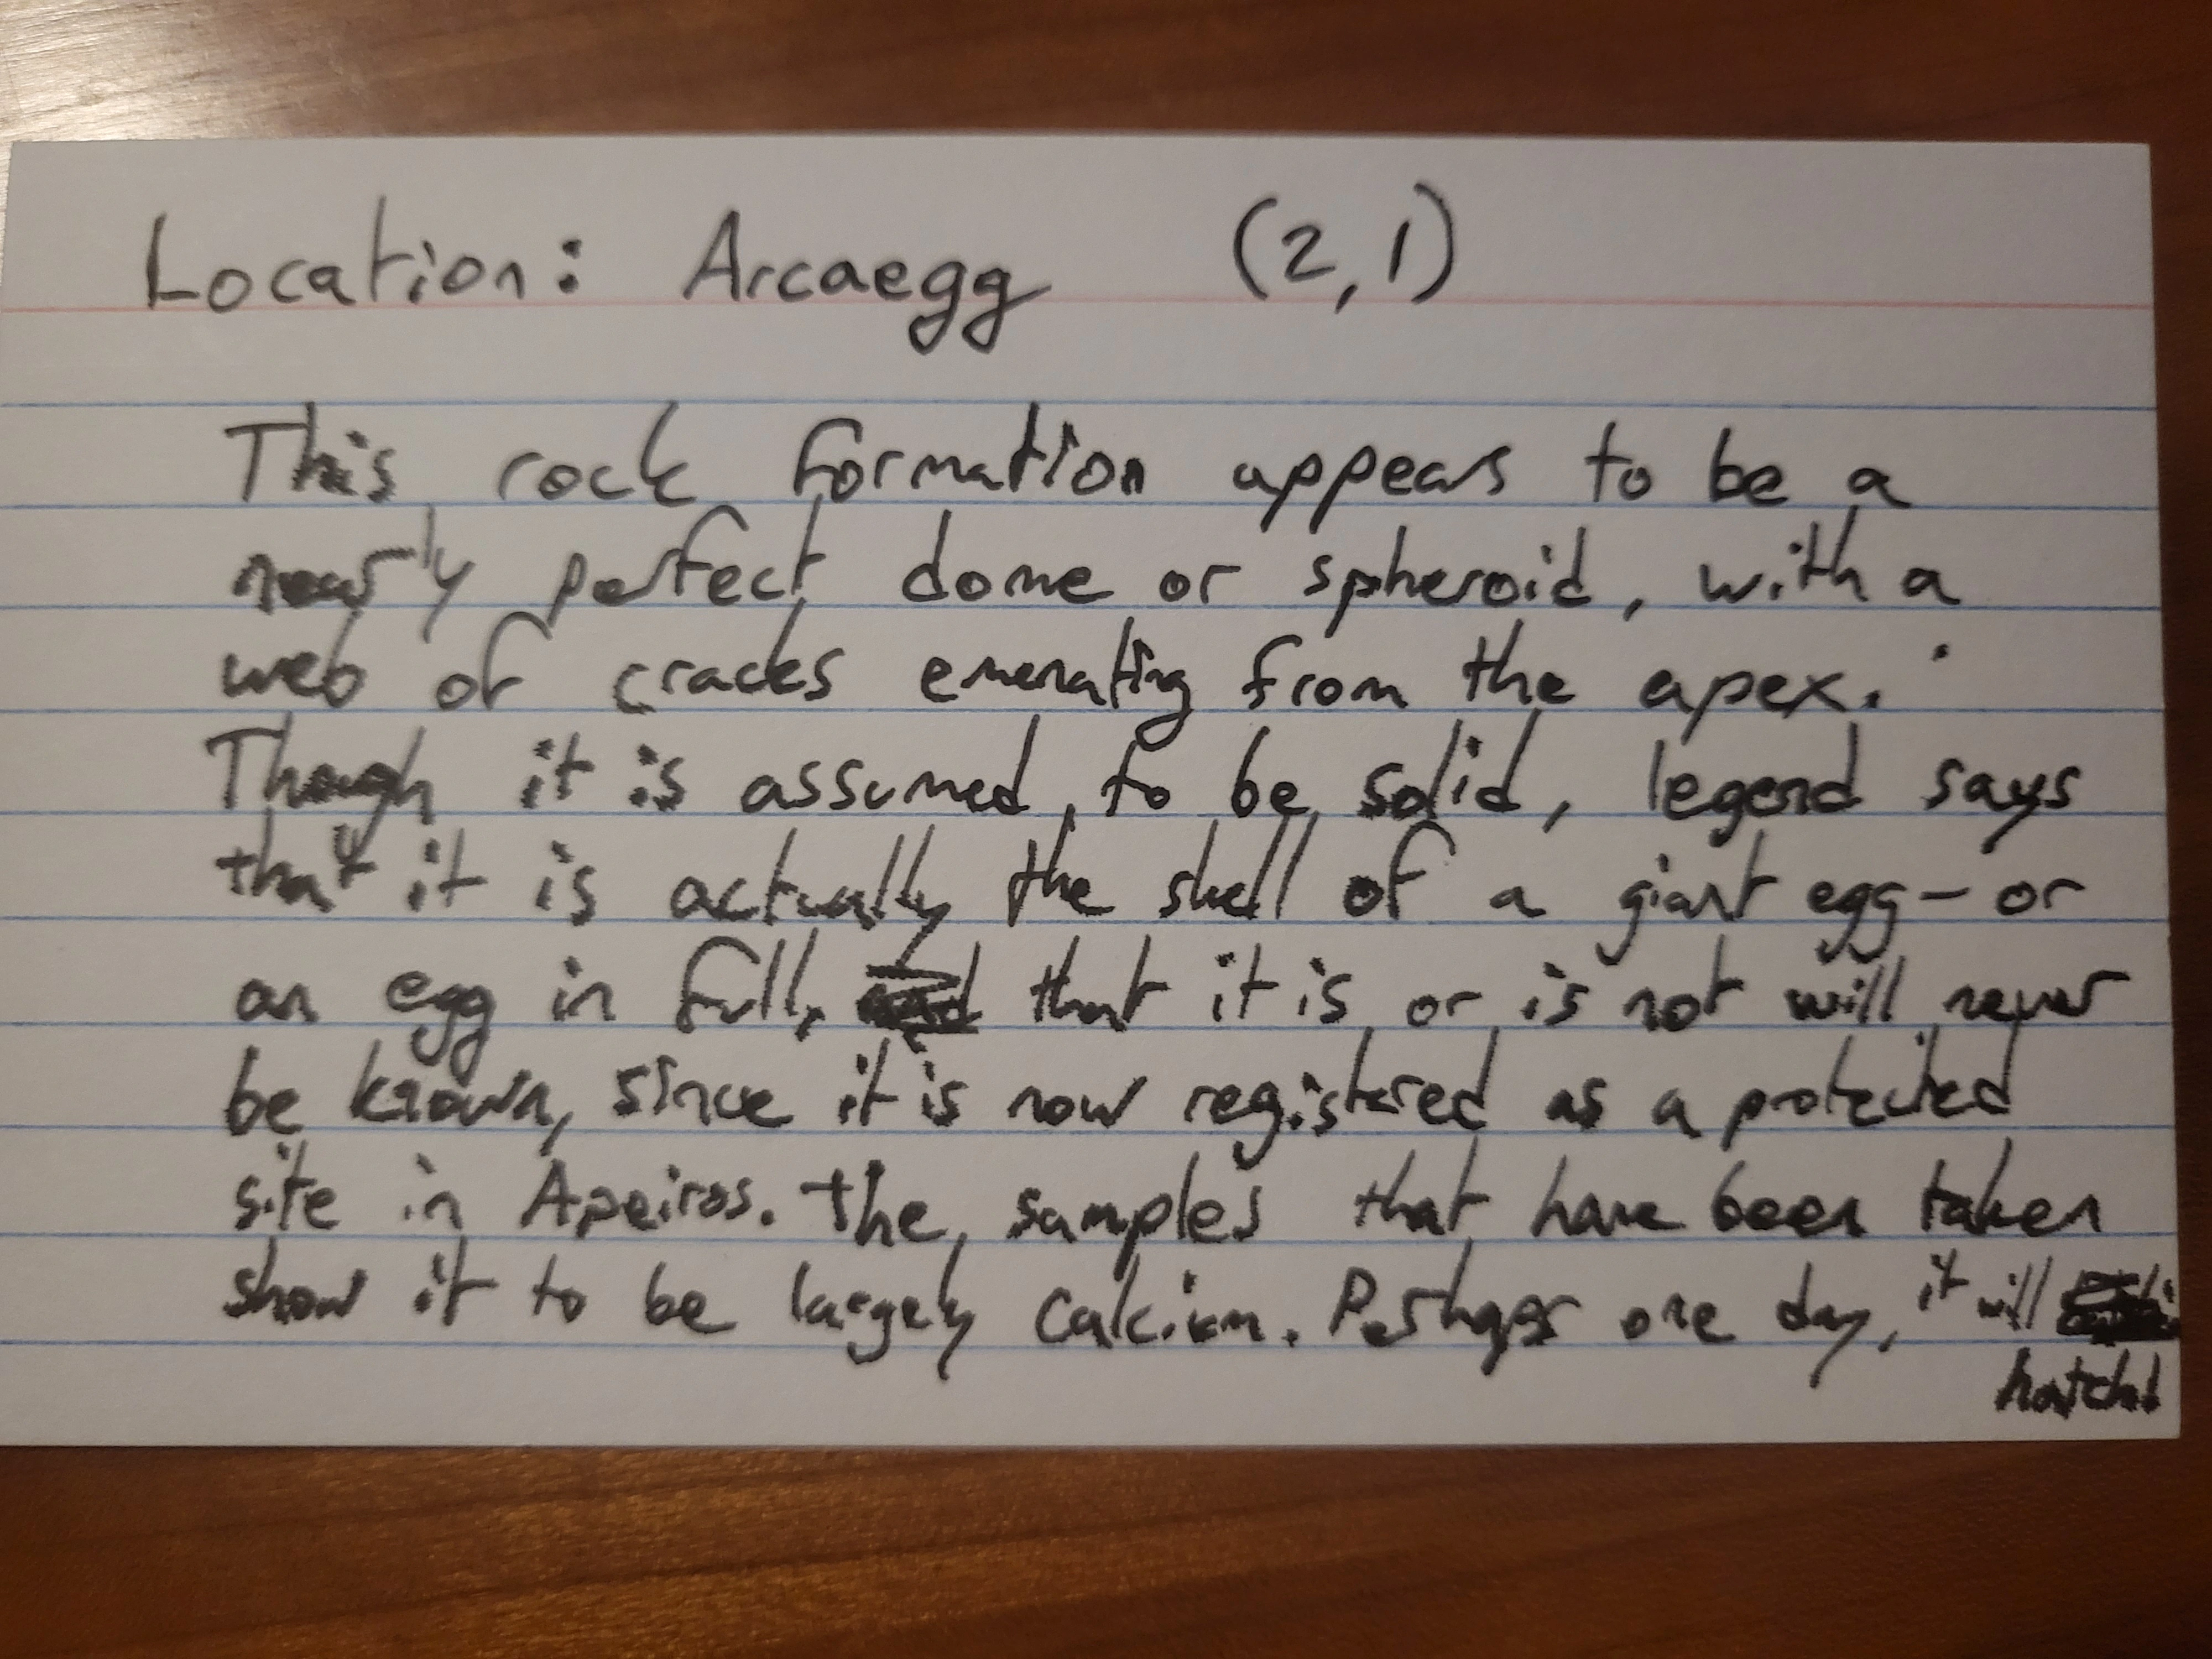 Location: Arcaegg (2,1)
This rock formation appears to be a
nearly perfect dome or spheroid, with a
web of cracks emenating from the apex.
Though it is assumed to be solid, legend says
that it is actually the shell of a giant egg - or
an egg in full, that it is or is not will never
be known, since it is now registered as a protected
site in Apeiros. The samples that have been taken
show it to be largely calcium. Perhaps one day, it will
hatch!